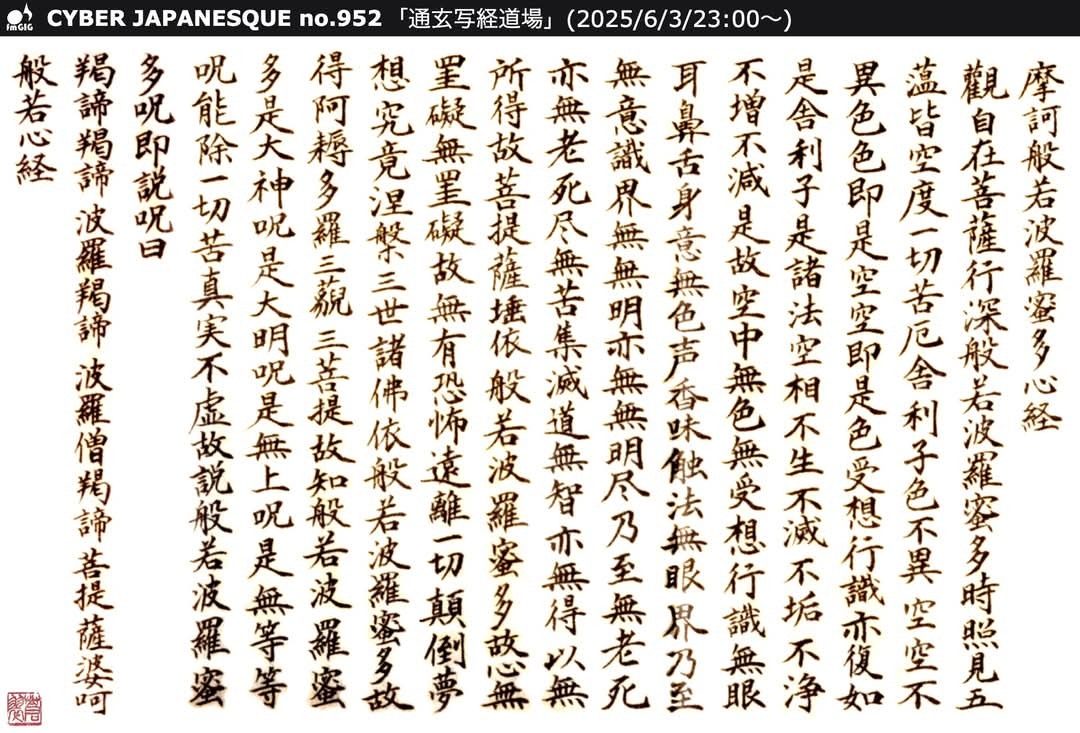 fmGIG
CYBER JAPANESQUE no.952 「通玄写経道場」(2025/6/3/23:00〜)
摩訶般若波羅蜜多心経
觀自在菩薩行深般若波羅蜜多時照見五
薀皆空度一切苦厄舎利子色不異空空不
異色色即是空空即是色受想行識亦復如
是舎利子是諸法空相不生不滅不垢不浄
不増不減是故空中無色無受想行識無眼
耳鼻舌身意無色声香味触法無眼界乃至
無意識界無無明亦無無明尽乃至無老死
亦無老死尽無苦集滅道無智亦無得以無
所得故菩提薩埵依般若波羅蜜多故心無
罣礙無罣礙故無有恐怖遠離一切顛倒夢
想究竟涅槃三世諸佛依般若波羅蜜多故
得阿耨多羅三藐三菩提故知般若波羅蜜
多是大神呪是大明呪是無上呪是無等等
呪能除一切苦真実不虚故説般若波羅蜜
多呪即説呪曰
羯諦羯諦 波羅羯諦 波羅僧羯諦 菩提薩婆呵
般若心経